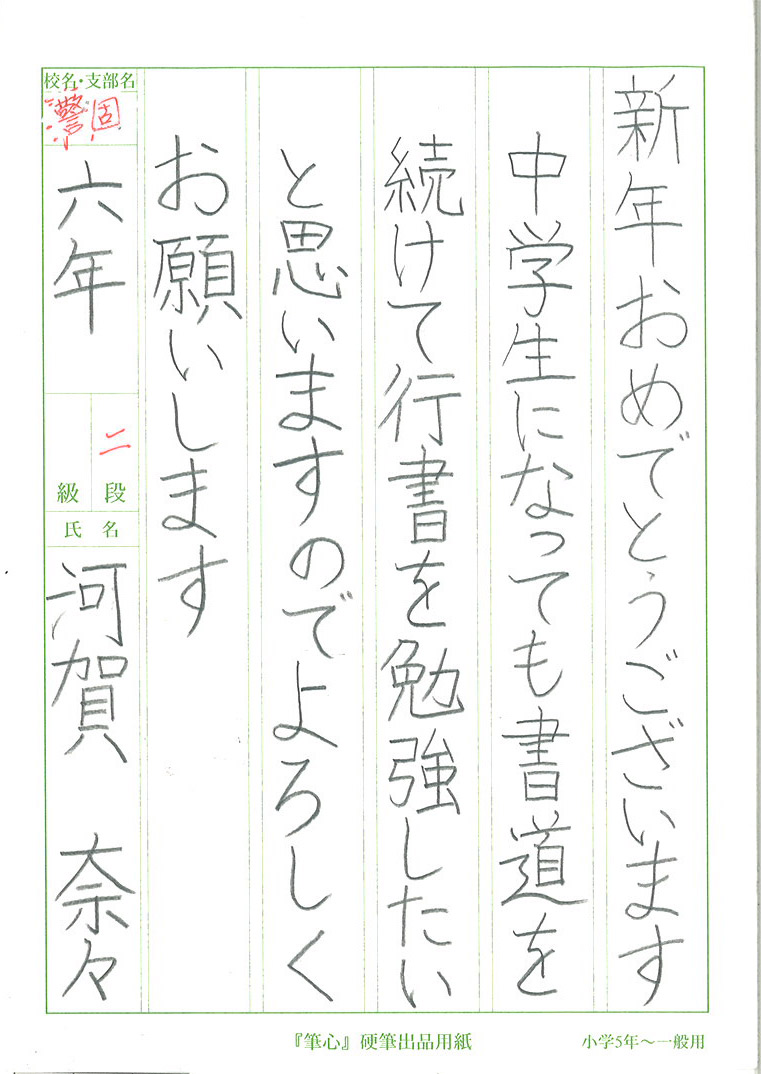 新年おめでとうございます
中学生になっても書道を
続けて行書を勉強したい
と思いますのでよろしく
お願いします
校名・支部名
警固
六年
二
級 段
氏 名
河賀 奈々
『筆心』硬筆出品用紙
小学5年～一般用